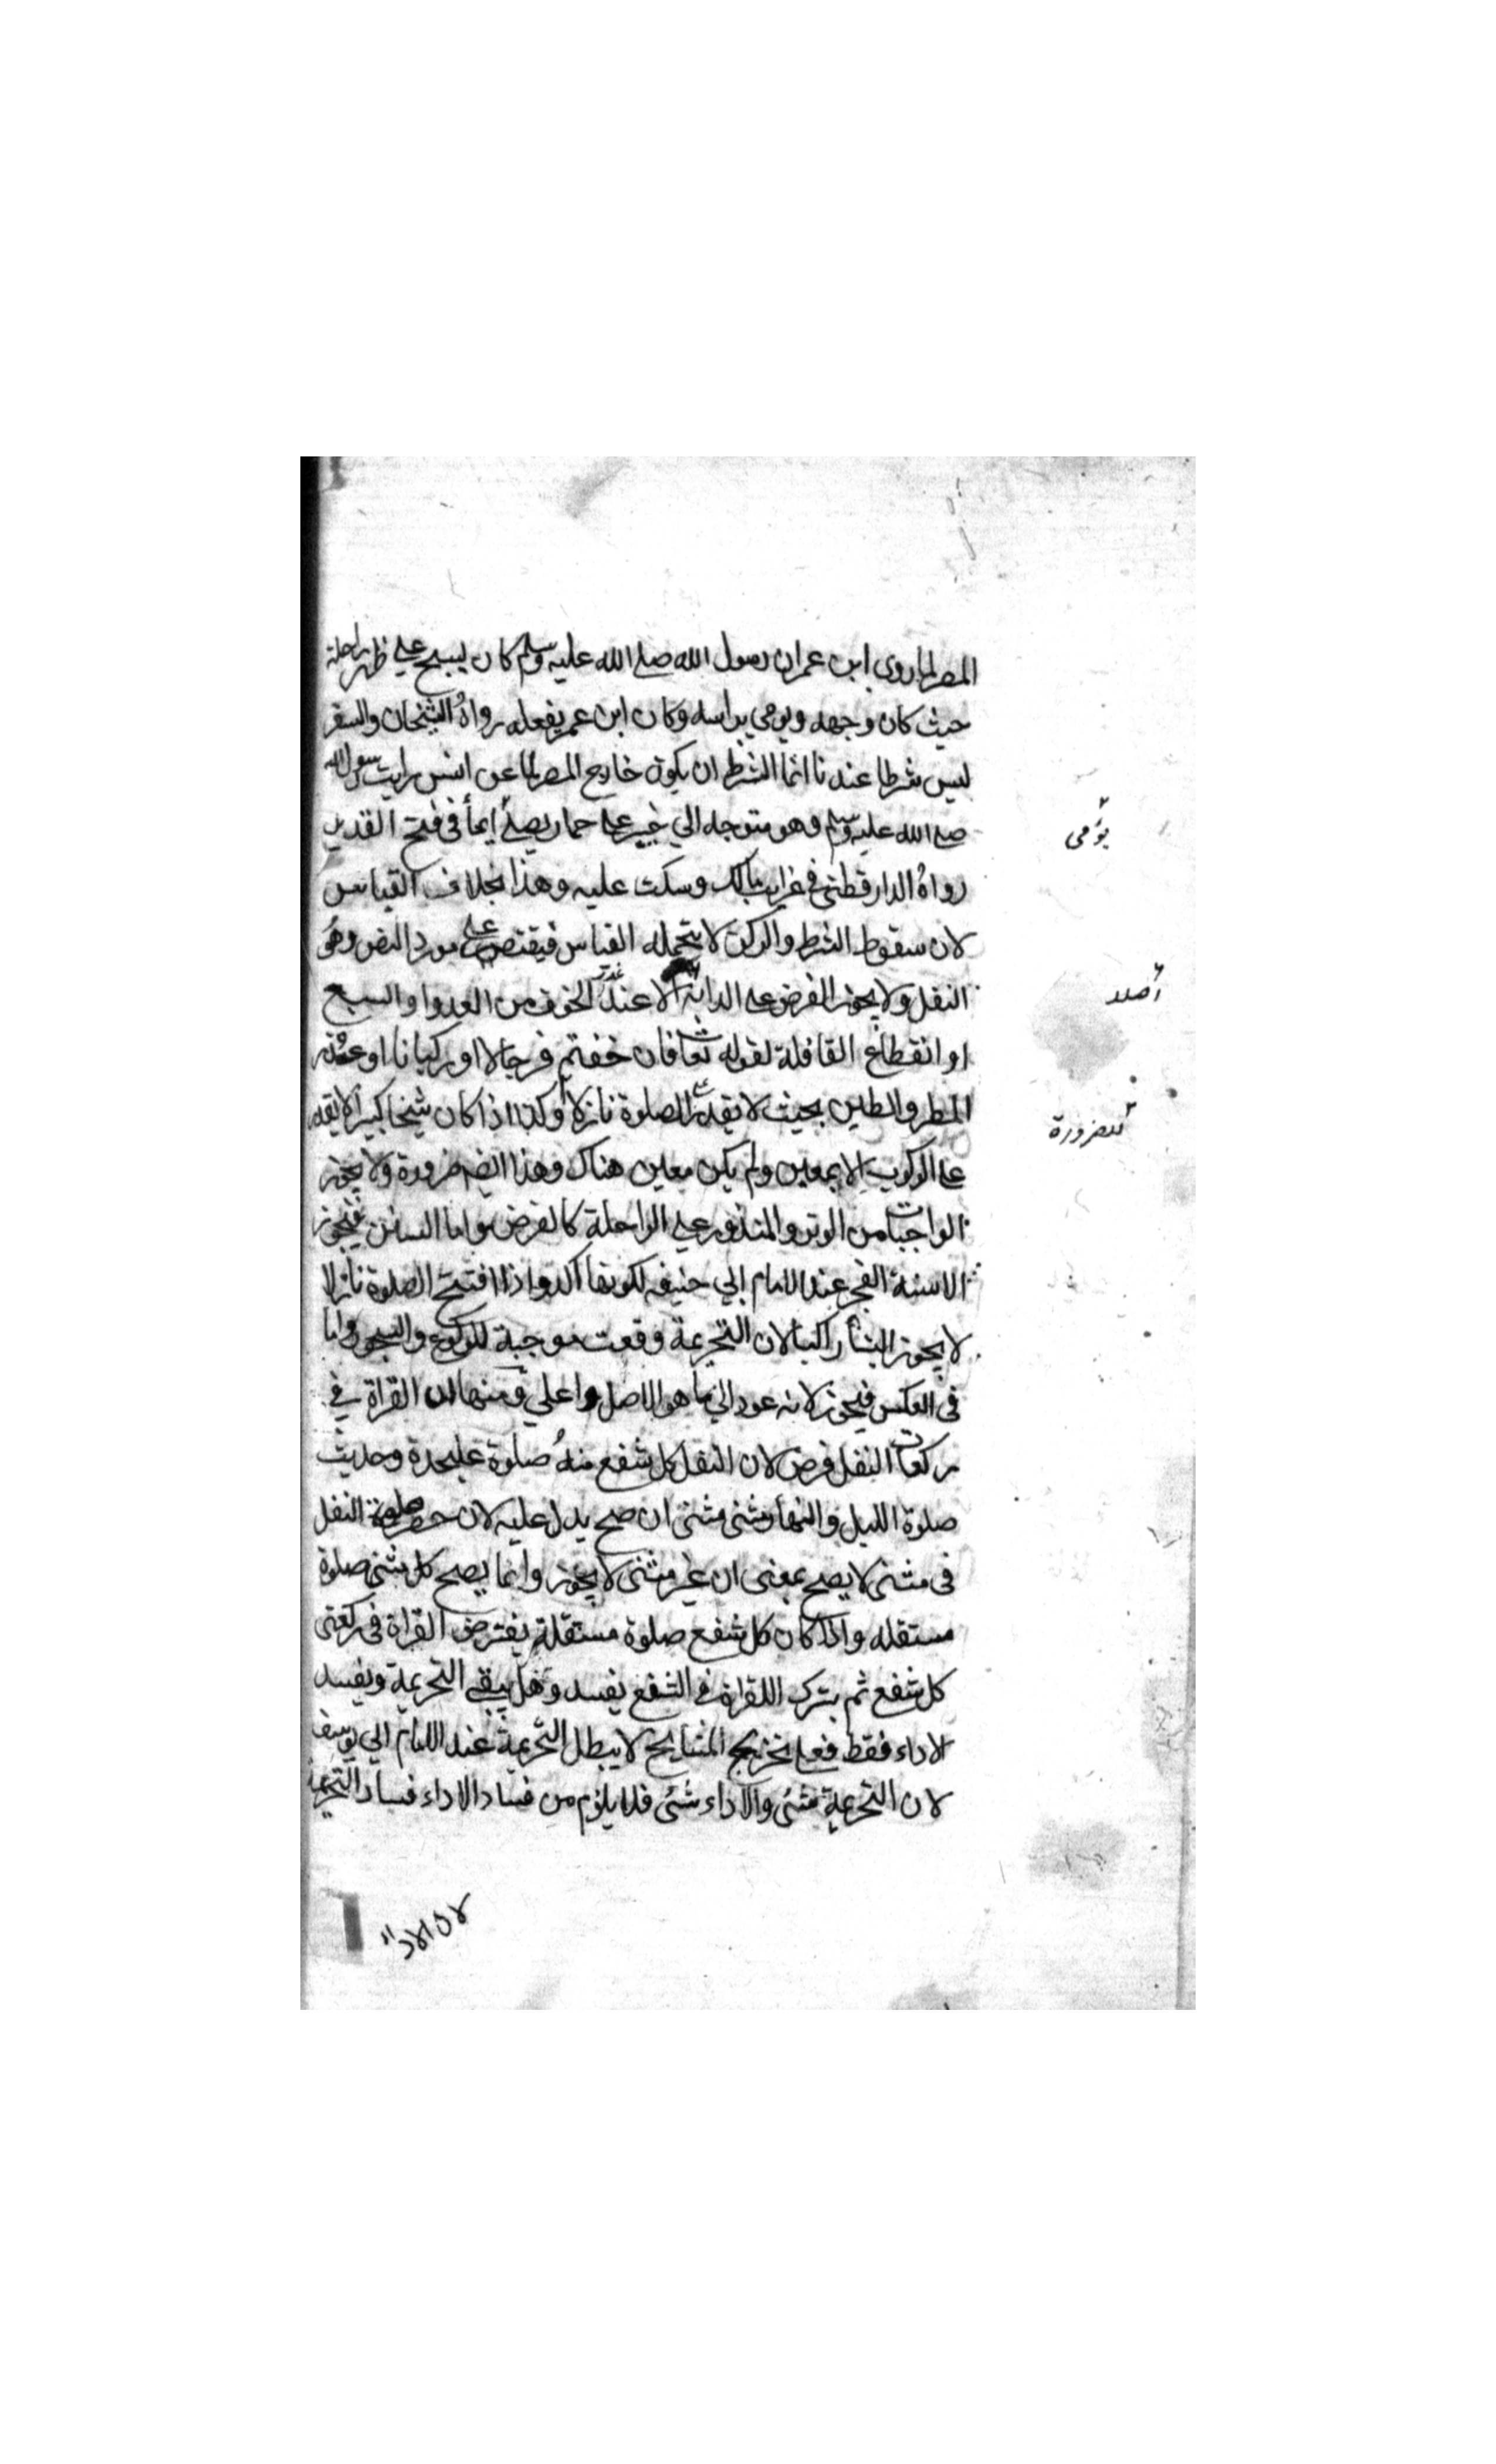 المصر لما روى ابن عمر ان رسول الله صلى الله عليه وسلم كان يسبح على ظهر راحلة
حيث كان وجهه ويومى براسه وكان ابن عمر يفعله رواه الشيخان والسفر
ليس شرطا عندنا انما الشرط ان يكون خارج المصر لما عن انس رايت رسول الله
صلى الله عليه وسلم وهو متوجه الي خيبر على حمار يصلى ايماً فى فتح القدير
يؤمى
رواه الدار قطنى فى غرايب مالك وسكت عليه وهذا بخلاف القياس
لان سقوط الشرط والركن لا يتحمله القياس فيقتصر على مورد النص وهو
النفل ولا يجوز الفرض على الدابة الا عند عذر الخوف من العدو او السبع
أصلا
او انقطاع القافلة لقوله تعا فان خفتم فرجالا او ركبانا او عند
المطر والطين بحيث لا يقدر الصلوة نازلا وكذا اذا كان شيخا كبيرا لا يقدر
للضرورة
على الركوب الا بمعين ولم يكن معين هناك وهذا ايضا ضرورة ولا يجوز
الواجبات من الوتر والمنذور على الراحلة كالفرض واما السنن فيجوز
الا سنة الفجر عند الامام ابي حنيفه لكونها آكد واذا افتتح الصلوة نازلا
لا يجوز البنأ راكبا لان التحريمة وقعت موجبة للركوع والسجود واما
فى العكس فيجوز لانه عود الي ما هو الاصل واعلي ومنها ان القراة في
ركعات النفل فرض لان النفل كل شفع منه صلوة عليحدة وحديث
صلوة الليل والنهار مثنى مثنى ان صح يدل عليه لان حصر صلوة النفل
فى مثنى لا يصح بمعنى ان غير مثنى لا يجوز وانما يصح كل مثنى صلوة
مستقله واذا كان كل شفع صلوة مستقلة يفترض القراة فى ركعتى
كل شفع ثم بترك القراة في الشفع يفسد وهل يبقى التحريمة ويفسد
الاداء فقط فعلى تخريج المشايخ لا يبطل التحريمة عند الامام ابي يوسف
لان التحريمة شئى والاداء شئى فلا يلزم من فساد الاداء فساد التحريمة
لان الاداء